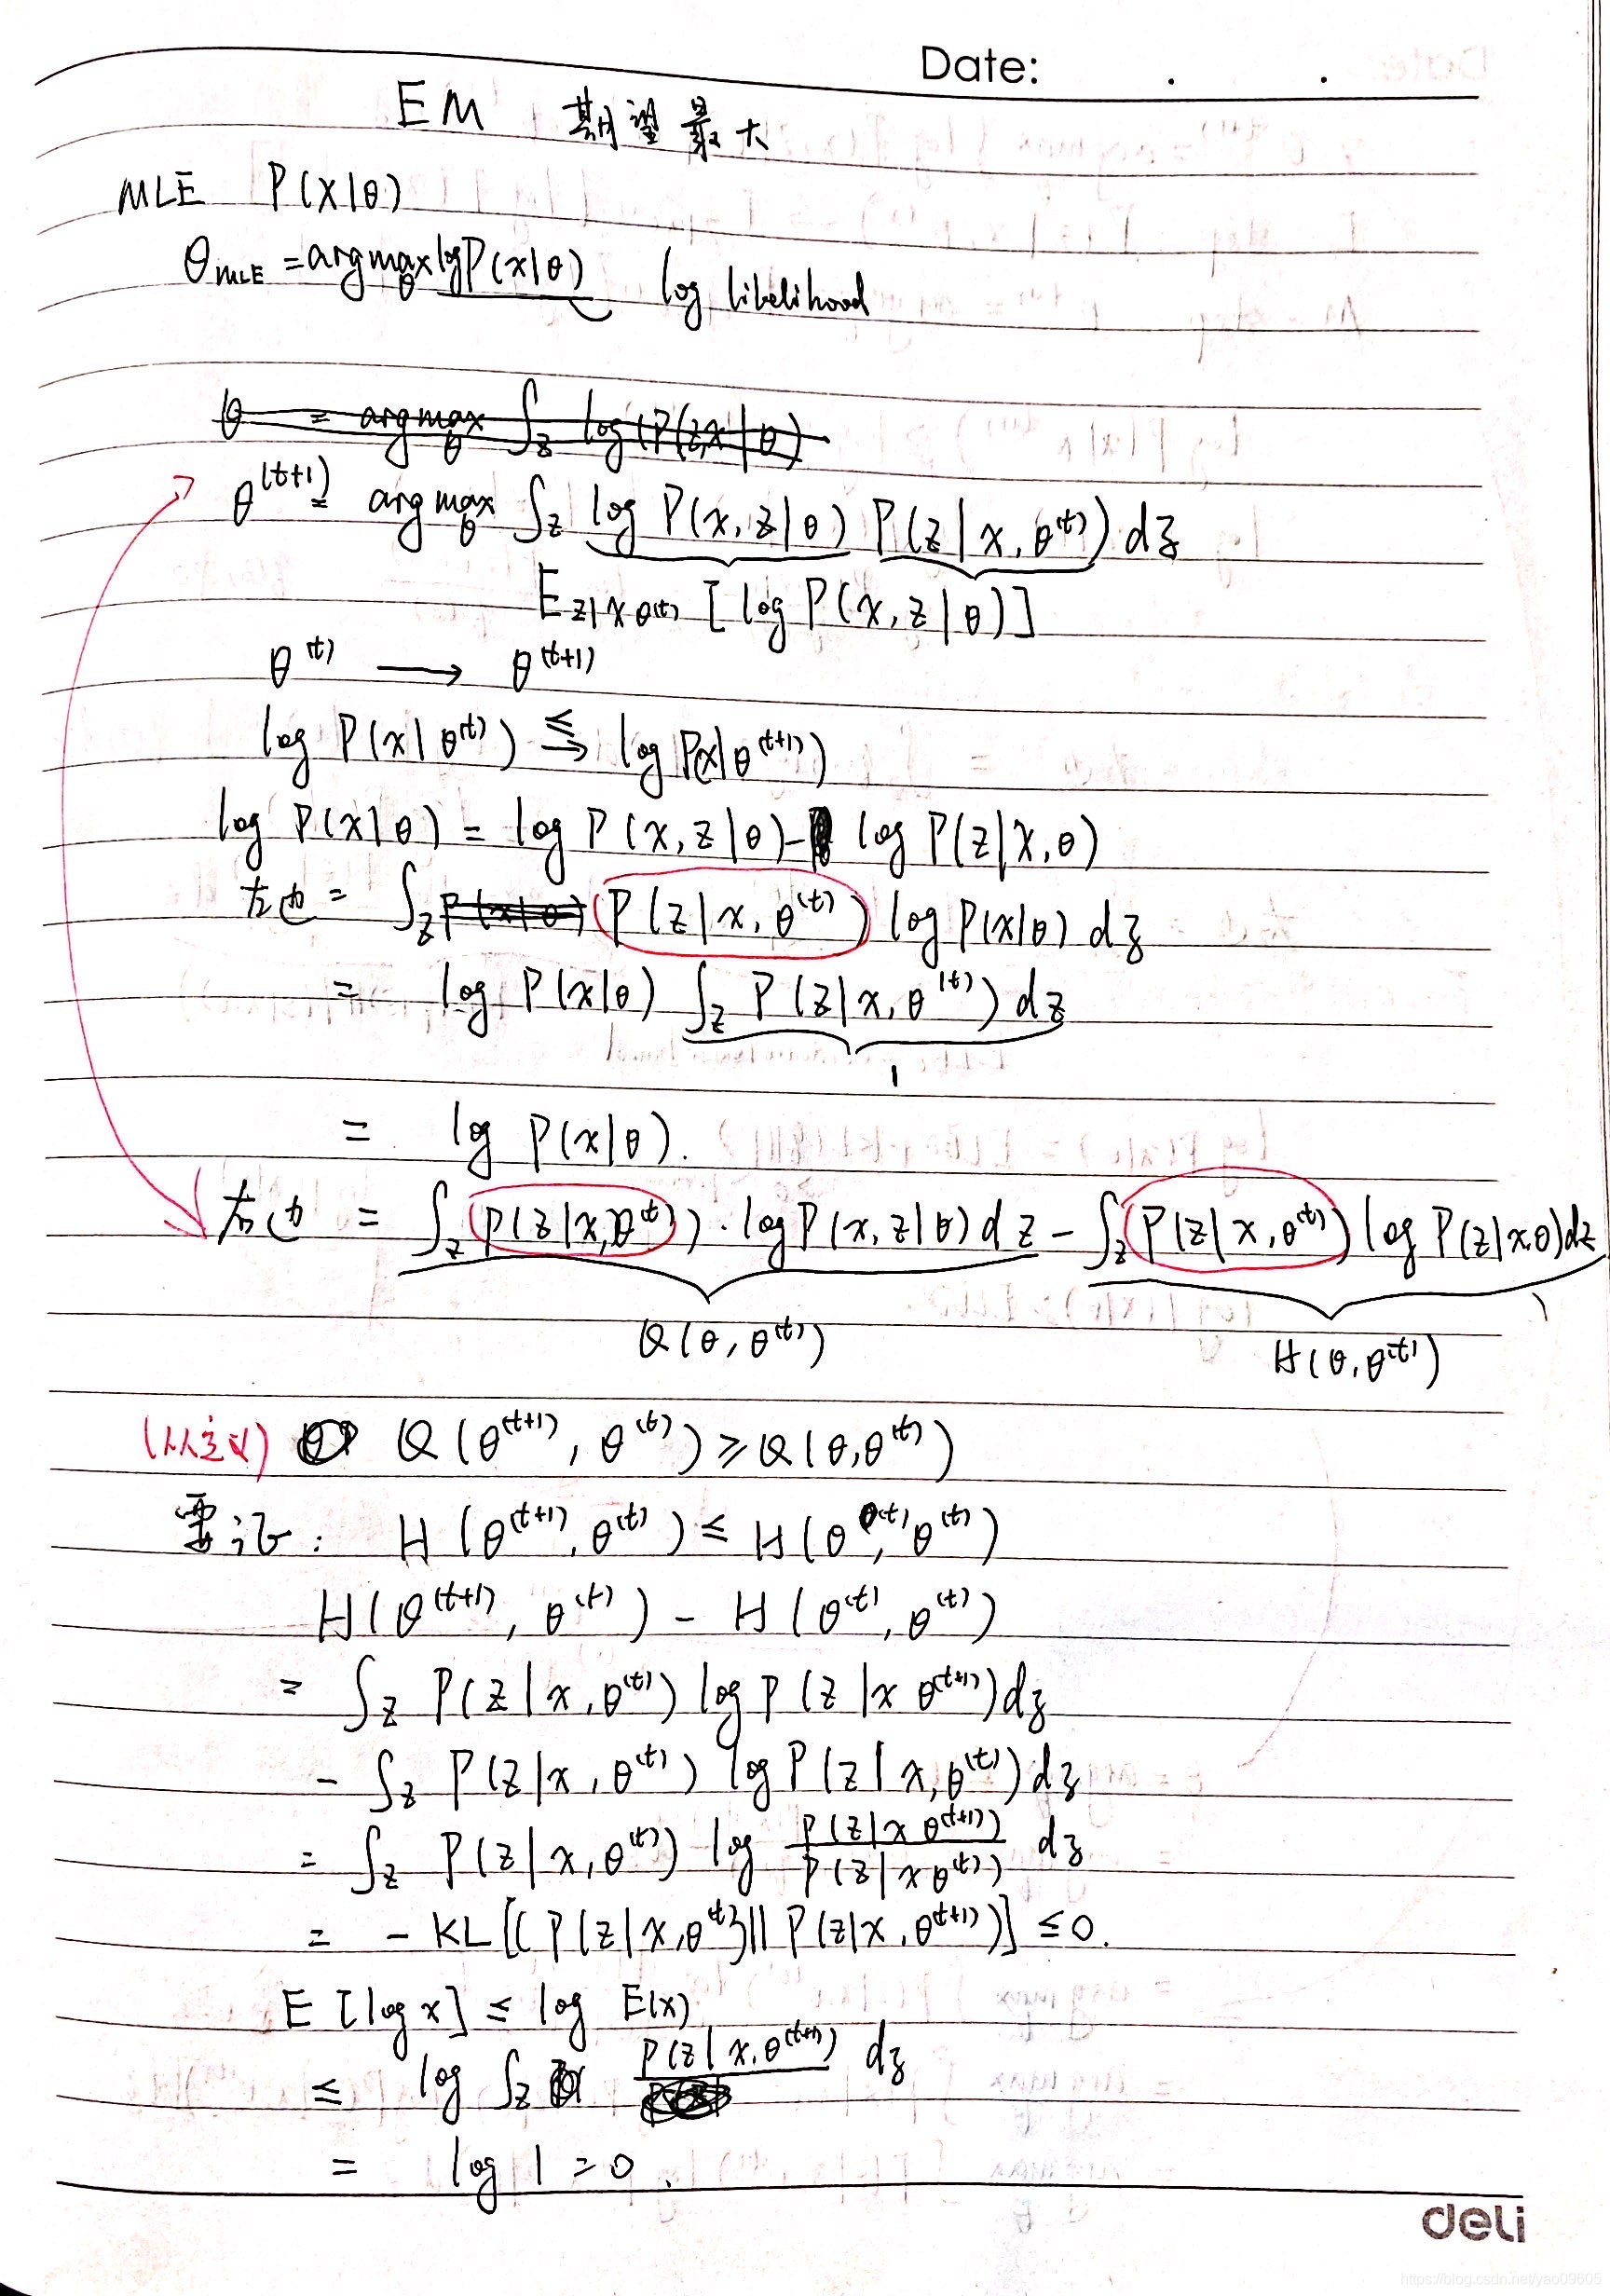 Date: . .
EM 期望最大
MLE P(x|θ)
θ_MLE = argmax_θ log P(x|θ) log likelihood
θ = argmax_θ ∫_z log(P(z,x|θ)
θ^(t+1) = argmax_θ ∫_z log P(x,z|θ) P(z|x,θ^(t)) dz
E_z|x θ^(t) [log P(x,z|θ)]
θ^(t) → θ^(t+1)
log P(x|θ^(t)) ≤→ log P(x|θ^(t+1))
log P(x|θ) = log P(x,z|θ) - log P(z|x,θ)
左边 = ∫_z P(x|θ) P(z|x,θ^(t)) log P(x|θ) dz
= log P(x|θ) ∫_z P(z|x,θ^(t)) dz
1
= log P(x|θ).
右边 = ∫_z P(z|x,θ^t)) · log P(x,z|θ) dz - ∫_z P(z|x,θ^(t)) log P(z|x,θ) dz
Q(θ,θ^(t)) H(θ,θ^(t))
(从定义) Q(θ^(t+1), θ^(t)) ≥ Q(θ,θ^(t))
要证: H(θ^(t+1), θ^(t)) ≤ H(θ^(t), θ^(t))
H(θ^(t+1), θ^(t)) - H(θ^(t), θ^(t))
= ∫_z P(z|x,θ^(t)) log P(z|x θ^(t+1)) dz
- ∫_z P(z|x,θ^(t)) log P(z|x,θ^(t)) dz
= ∫_z P(z|x,θ^(t)) log P(z|x θ^(t+1)) / P(z|x θ^(t)) dz
= - KL[(P(z|x,θ^t)||P(z|x,θ^(t+1))] ≤ 0.
E[log x] ≤ log E(x)
≤ log ∫_z P(z|x,θ^(t+1)) dz
= log 1 = 0.
deli
https://blog.csdn.net/yao09605